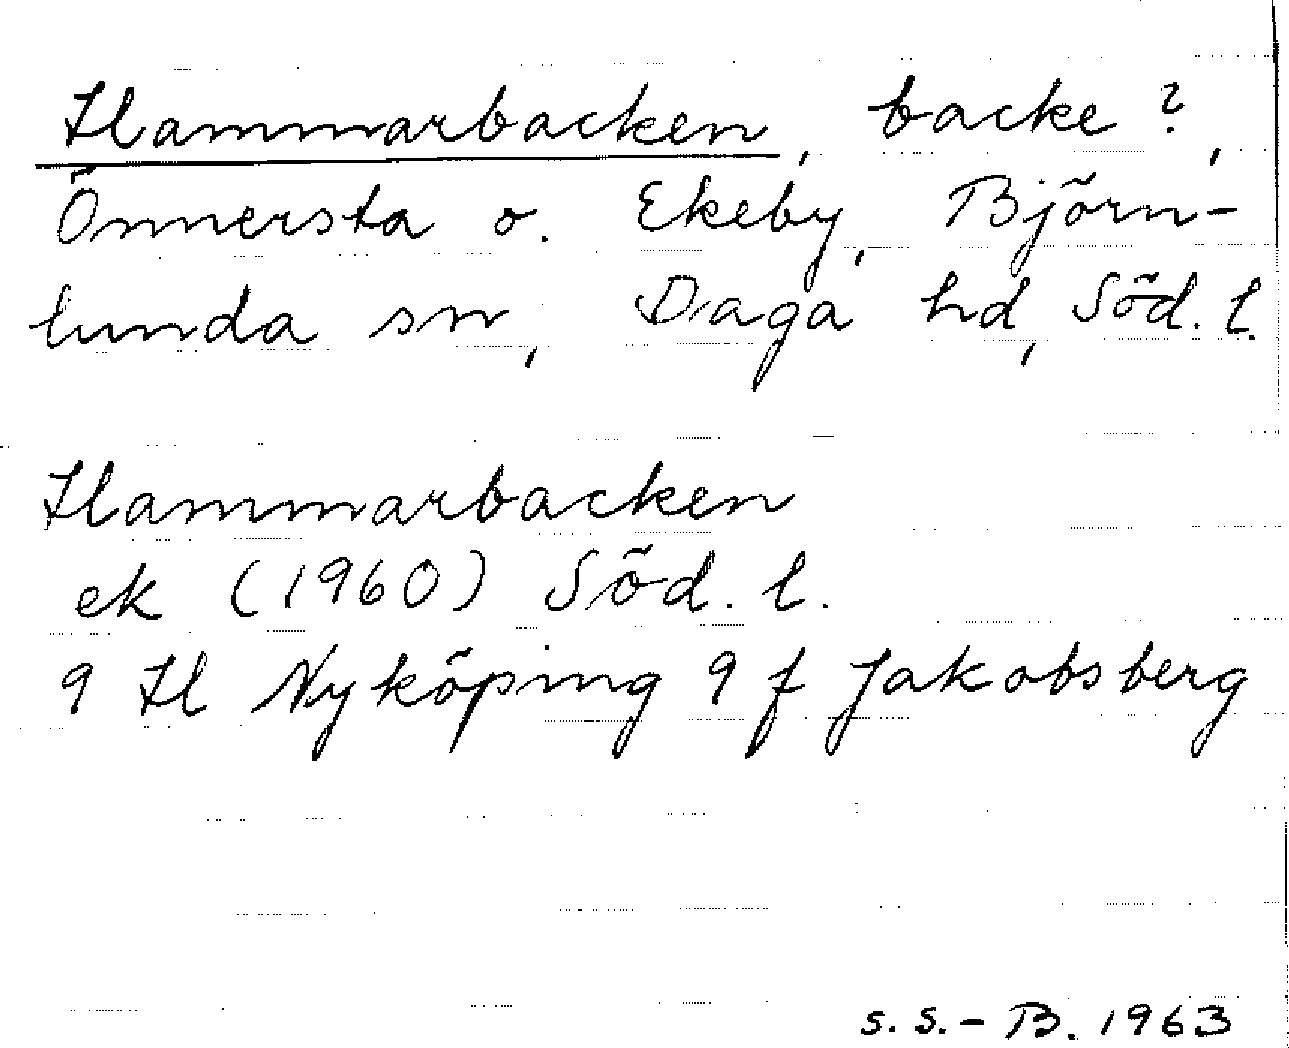 Hammarbacken, backe?,
Önnersta o. Ekeby, Björn-
lunda sn, Daga hd, Söd. l.
Hammarbacken
ek (1960) Söd. l.
9 H Nyköping 9 f Jakobsberg
S.S.-B. 1963